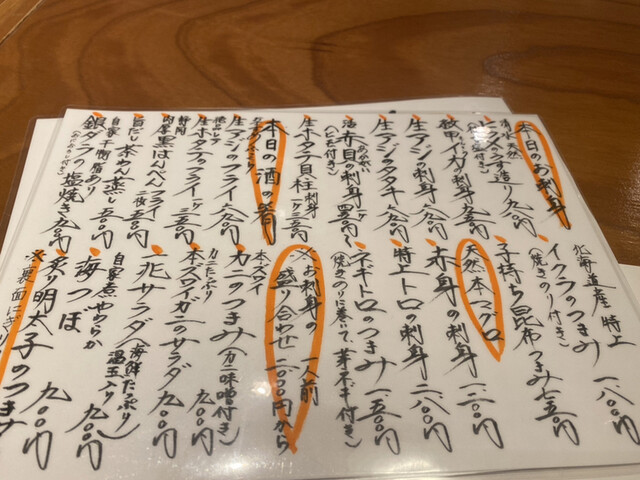 本日のお刺身
清水 天然
イクラのつまみ
北海道産 特上
一八〇〇円
(焼きのり付き)
子持ち昆布つまみ 七五〇円
天然本マグロ
甲イカの刺身
生アジの刺身 九〇〇円
赤身の刺身 一二〇〇円
生アジのタタキ 九〇〇円
特上トロの刺身 二八〇〇円
赤貝の刺身
ネギトロのつまみ 一五〇〇円
(焼きのりに巻いて、芽ネギ付き)
生ホタテ貝柱刺身
※お刺身の 一人前
盛り合わせ 二〇〇〇円から
本日の酒の肴
本ズワイ
カニのつまみ (カニ味噌付き)
生アジのフライ 九〇〇円
カニたっぷり
本ズワイガニのサラダ 九〇〇円
生ホタテのフライ
静岡
肉厚黒はんぺんフライ
一兆サラダ (海鮮たっぷり)
旨だし
茶わん蒸し 五〇〇円
自家煮 やわらか
温玉入り
海つぼ 九〇〇円
自家干物 脂あり
銀ダラの塩焼き 九〇〇円
炙り明太子のつまみ 九〇〇円
※裏面にぎり